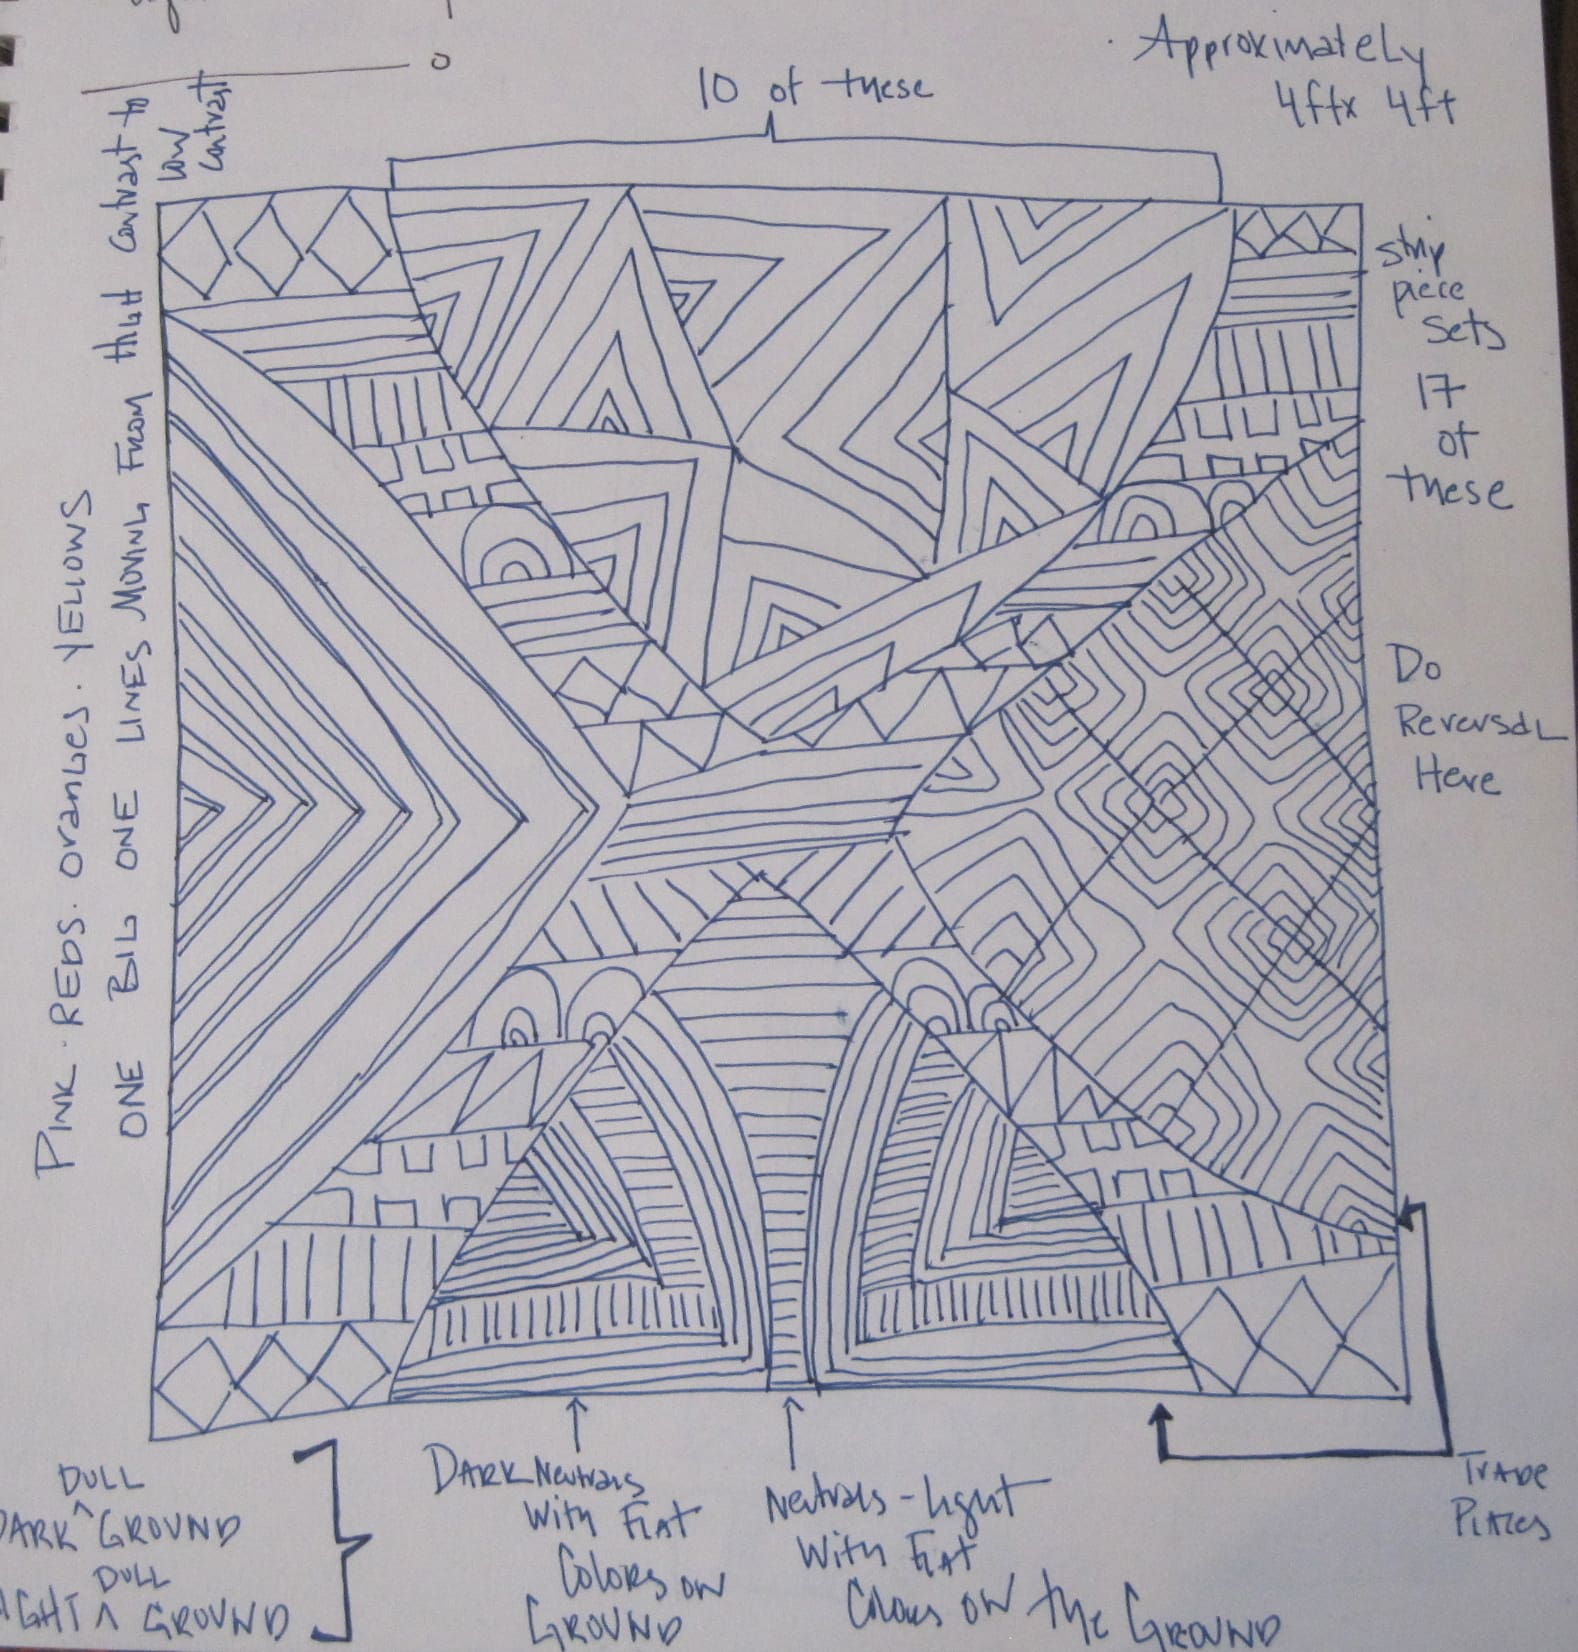 10 of these
Approximately
4ftx 4ft
PINK. REDS. OrangEs. YELLOWS
ONE BIG ONE LINES MOVING From HIGH Contrast to
Low
Contrast
Strip
piece
Sets
17
of
these
Do
ReversaL
Here
DULL
DARK ^ GROUND
DULL
^ GROUND
DARK Neutrals
With FLAT
Colors ON
GROUND
Neutrals - Light
With FLAT
Colors ON the GROUND
TRADE
PLACES